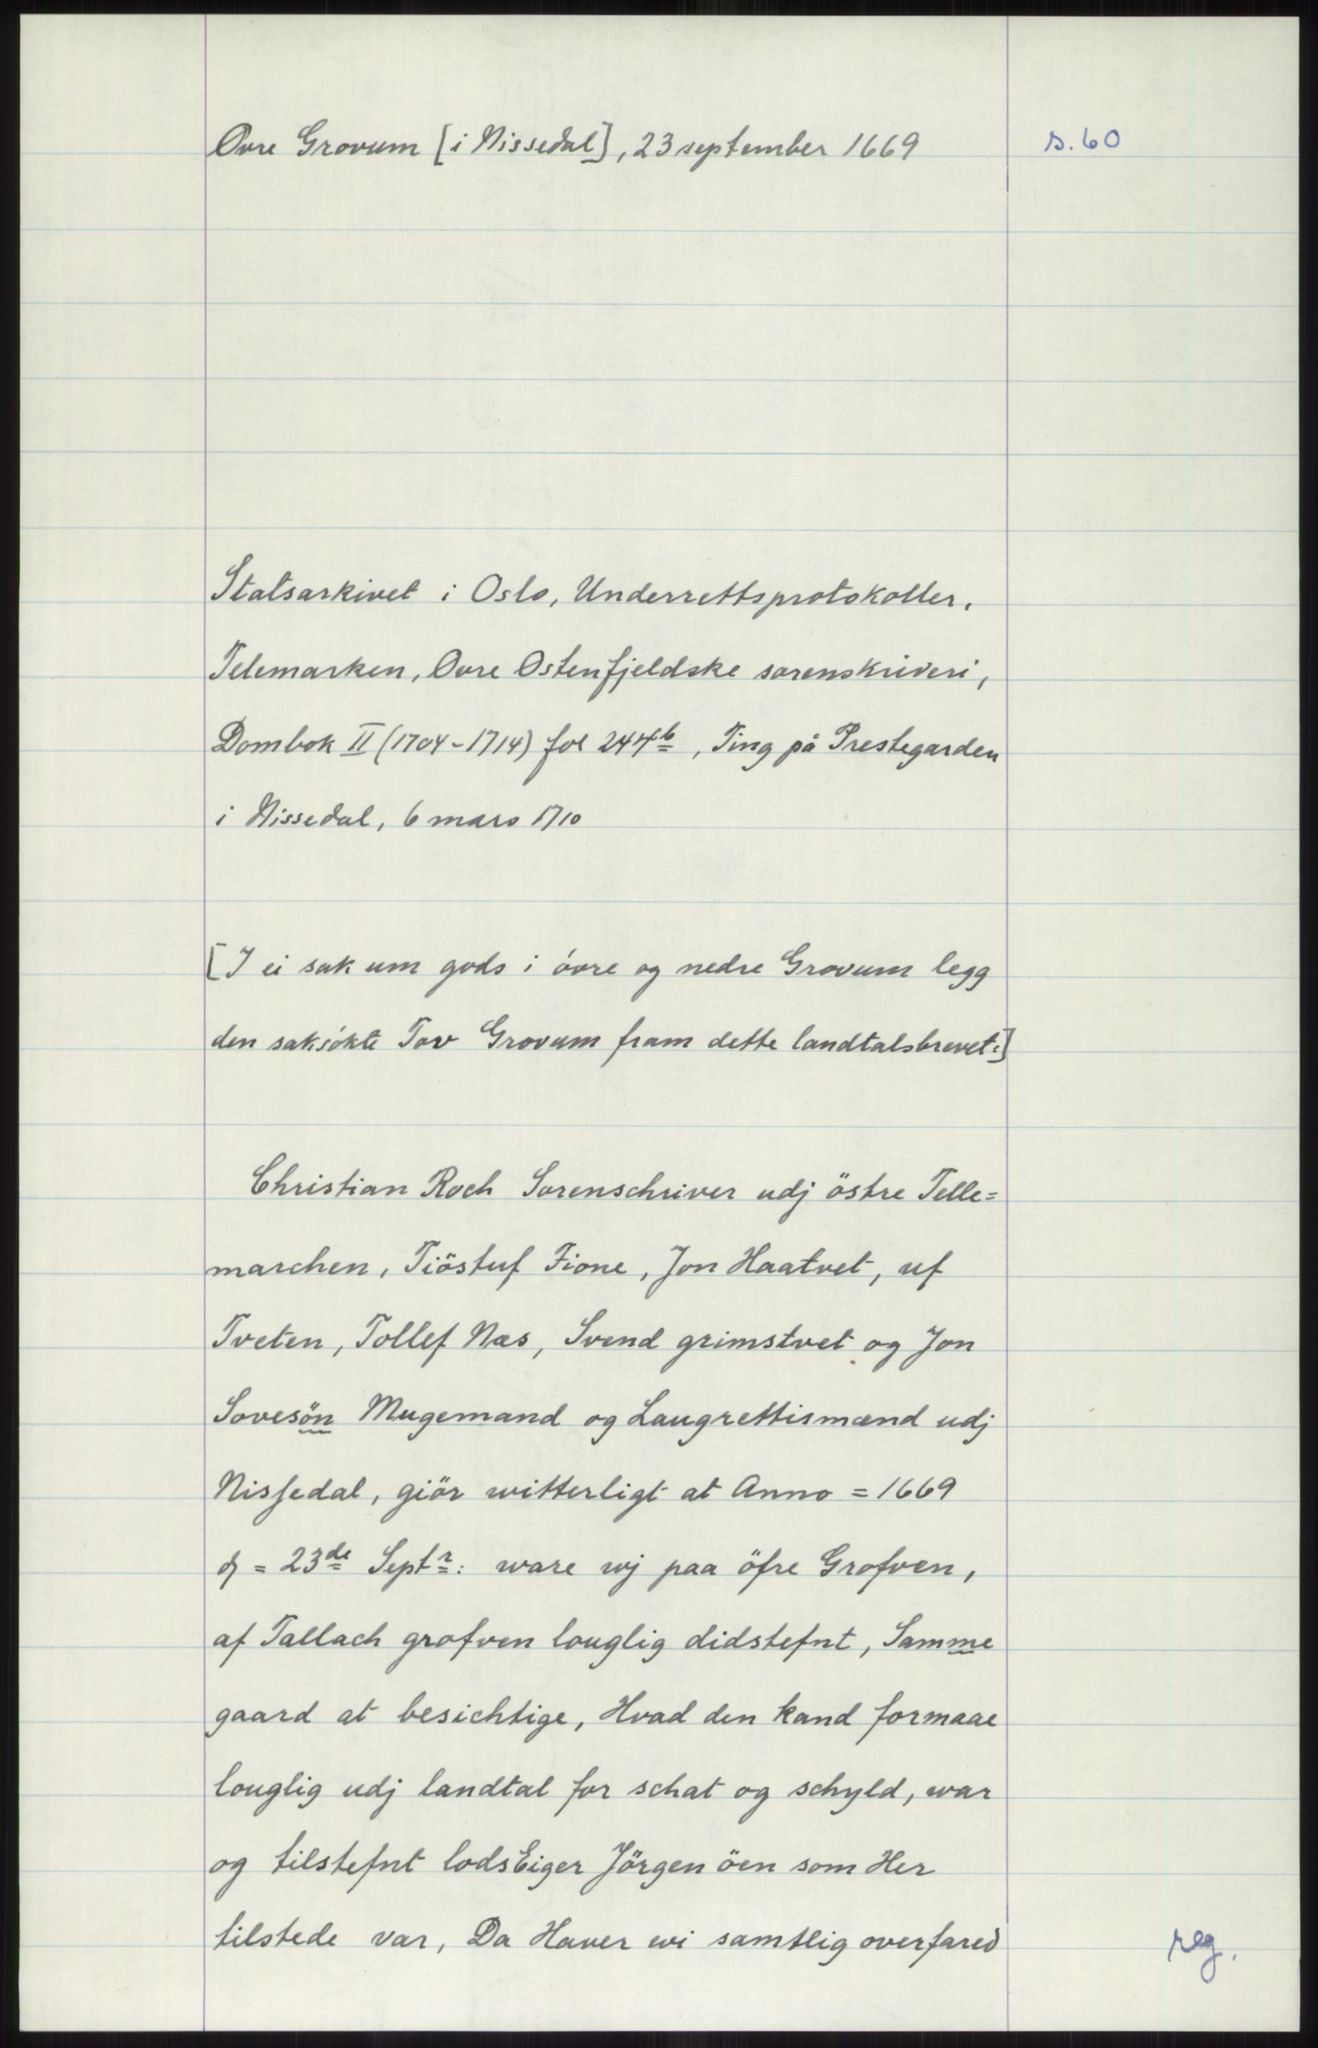 Øvre Grovum [i Nissedal], 23 september 1669
s. 60
Statsarkivet i Oslo, Underrettsprotokoller.
Telemarken, Øvre Østenfjeldske sorenskriveri,
Dombok II (1704-1714) fol 244b, Ting på Prestegarden
i Nissedal, 6 mars 1710
[I ei sak um gods i övre og nedre Grovum legg
den saksökte Tov Grovum fram dette landtalsbrevet:]
Christian Roch Sorenschriver udj östre Telle=
marchen, Tiöstuf Fione, Jon Haatvet, uf
Tveten, Tollef Næs, Svend grimstvet og Jon
Sovesön Mugemand og Laugrettismænd udj
Nissedal, giör witterligt at Anno = 1669
d = 23de Septr: ware wj paa öfre Grofven,
af Tallach grofven louglig didstefnt, Samme
gaard at besichtige, Hvad den kand formaae
louglig udj landtal for schat og schyld, war
og tilstefnt lodsEiger Jörgen öen som Her
tilstede var, Da Haver wi samtlig overfared
reg.